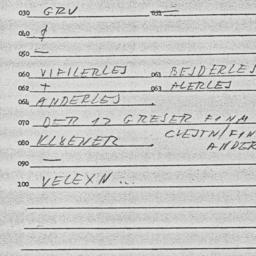 030 GRU 033 =
040 $
050 —
060 VIFILERLEJ 061 BEJDERLEJ
062 + 063 ALERLEJ
064 ANDERLEJ
070 DER 12 GRESER FUN
080 KLENER
ANDER
090 —
100 VELEXN ...